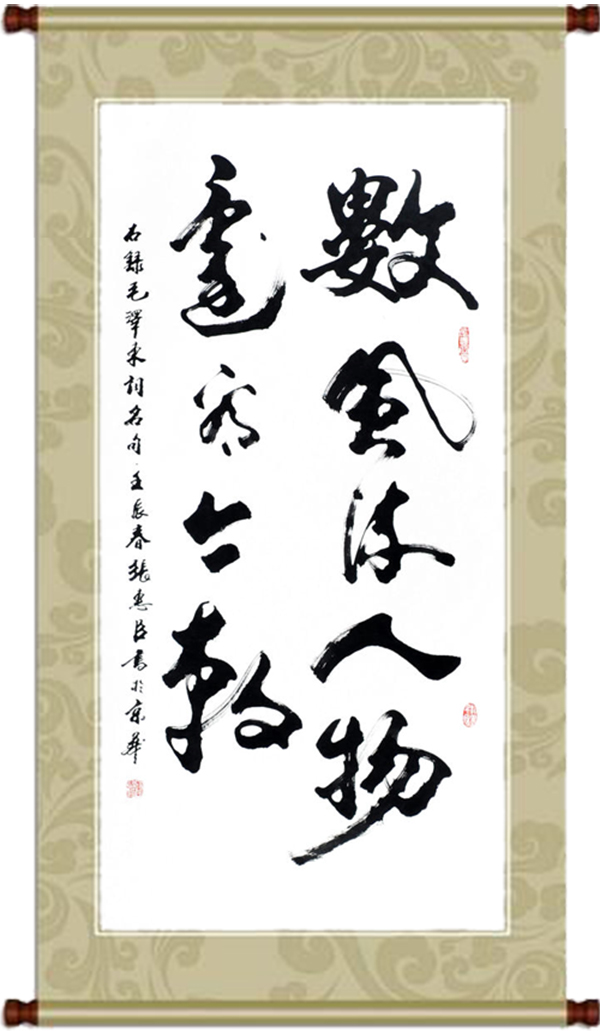 數風流人物
還看今朝
右録毛澤東詞名句壬辰春張惠臣書於京華